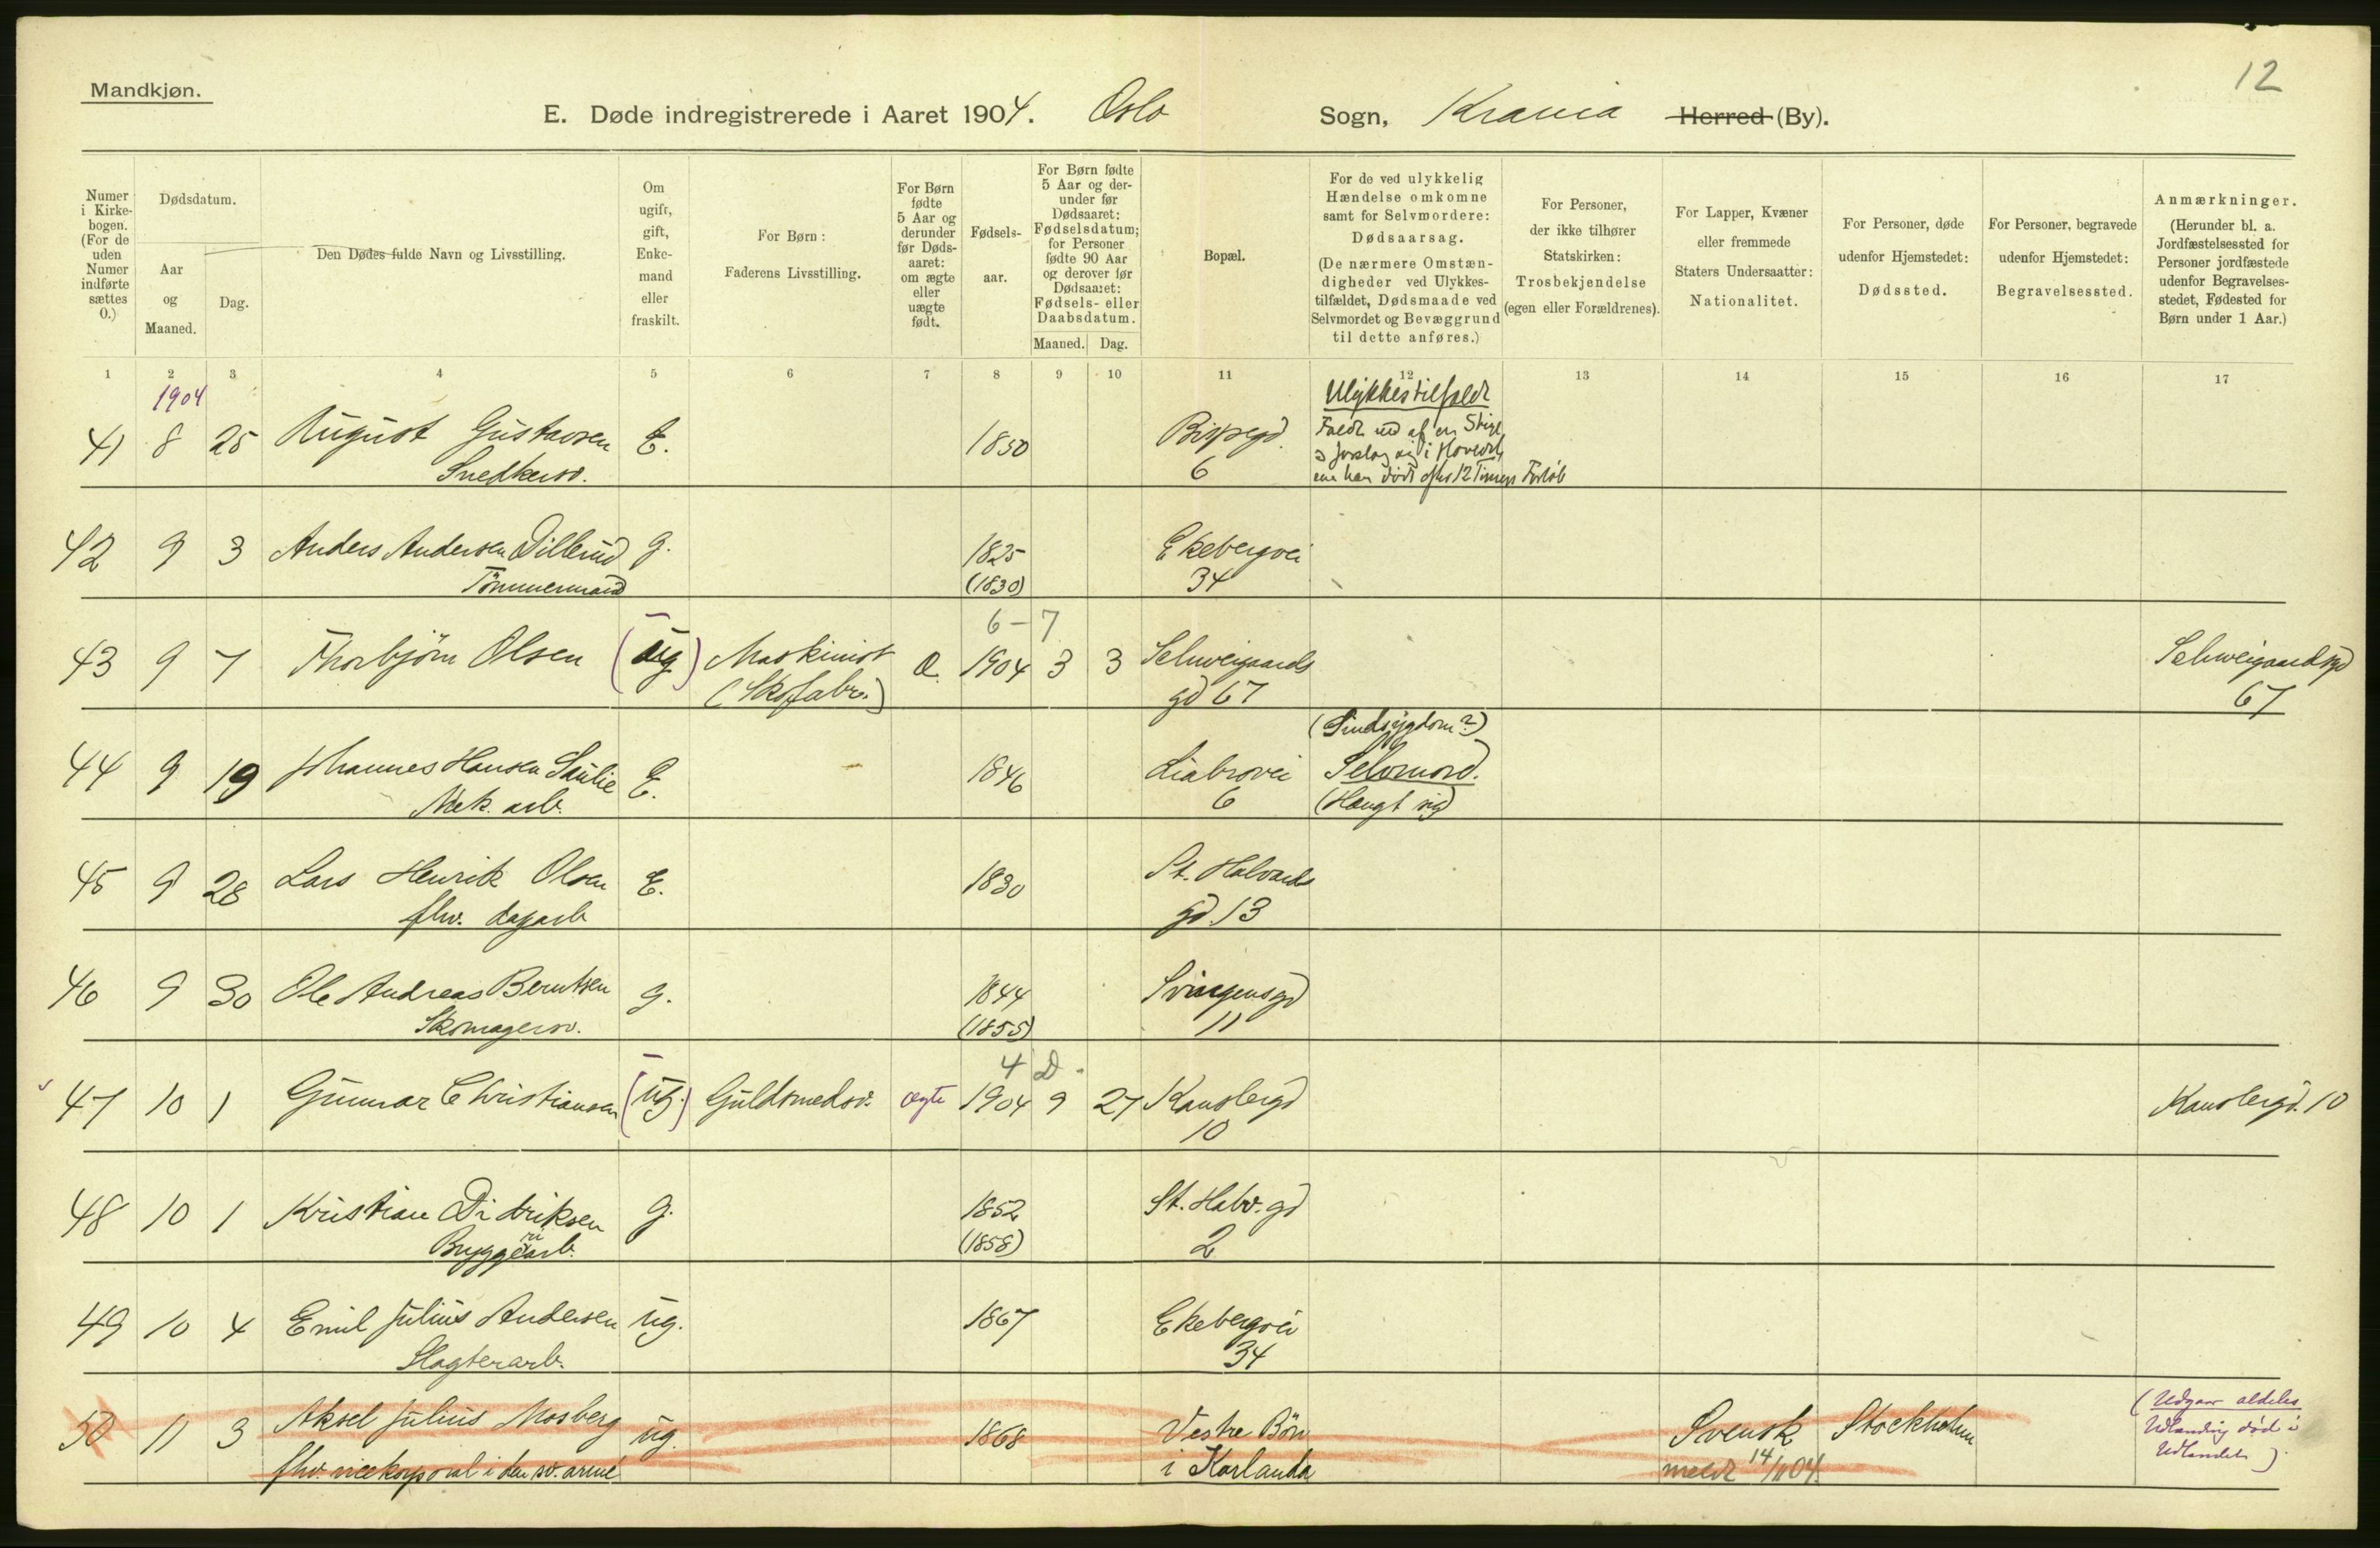 12
Mandkjøn.
E. Døde indregistrerede i Aaret 1904. Oslo Sogn, Krania Herred (By).
Numer i Kirkebogen. (For de uden Numer indførte sættes 0.)
Dødsdatum.
Aar og Maaned.
Dag.
Den Dødes fulde Navn og Livsstilling.
Om ugift, gift, Enkemand eller fraskilt.
For Børn: Faderens Livsstilling.
For Børn fødte 5 Aar og derunder før Dødsaaret: om ægte eller uægte født.
Fødselsaar.
For Børn fødte 5 Aar og derunder før Dødsaaret: Fødselsdatum; for Personer fødte 90 Aar og derover før Dødsaaret: Fødsels- eller Daabsdatum.
Maaned. Dag.
Bopæl.
For de ved ulykkelig Hændelse omkomne samt for Selvmordere: Dødsaarsag. (De nærmere Omstændigheder ved Ulykkestilfældet, Dødsmaade ved Selvmordet og Bevæggrund til dette anføres.)
For Personer, der ikke tilhører Statskirken: Trosbekjendelse (egen eller Forældrenes).
For Lapper, Kvæner eller fremmede Staters Undersaatter: Nationalitet.
For Personer, døde udenfor Hjemstedet: Dødssted.
For Personer, begravede udenfor Hjemstedet: Begravelsessted.
Anmærkninger. (Herunder bl. a. Jordfæstelsessted for Personer jordfæstede udenfor Begravelsesstedet, Fødested for Børn under 1 Aar.)
1 2 3 4 5 6 7 8 9 10 11 12 13 14 15 16 17
1904
Ulykkestilfælde
41 8 25 August Gustavsen E. 1830 Bispegd. Faldt ned af en Stige,
Snedkersv. 6
i Hovedet,
12 Timers Forløb
42 9 3 Anders Andersen Dillerud g. 1825 Ekebergvei
Tømmermand (1830) 34
6-7
43 9 7 Thorbjørn Olsen (ug) Maskinist 1904 3 3 Schweigaards Schweigaardsgd
(Skofabr.) gd 67 67
(Sindsygdom?)
44 9 19 Johannes Hansen E. 1846 Liabrovei Selvmord.
Mek. arb. 6 (Hængt sig)
45 9 28 Lars Henrik Olsen E. 1830 St. Halvards
fhv. dagarb gd. 13
46 9 30 Ole Andreas Berntsen g. 1844 Svingensgd
Skomagersv. (1855) 11
4 D.
47 10 1 Gunnar Christiansen (ug.) Guldsmedsv. ægte 1904 9 27 Kanslergd Kanslergd. 10
10
48 10 1 Kristian Didriksen g. 1852 St. Halv. gd
Bryggeriarb. (1858) 2
49 10 4 Emil Julius Andersen ug. 1867 Ekebergvei
Slagterarb. 34
50 11 3 Aksel Julius Mosberg ug. 1868 Vestre Bön Svensk Stockholm (Udgaar aldeles
fhv. vicekorporal i den sv. armé i Karlanda meldt 14/11 04. Udlænding død i
Udlandet)